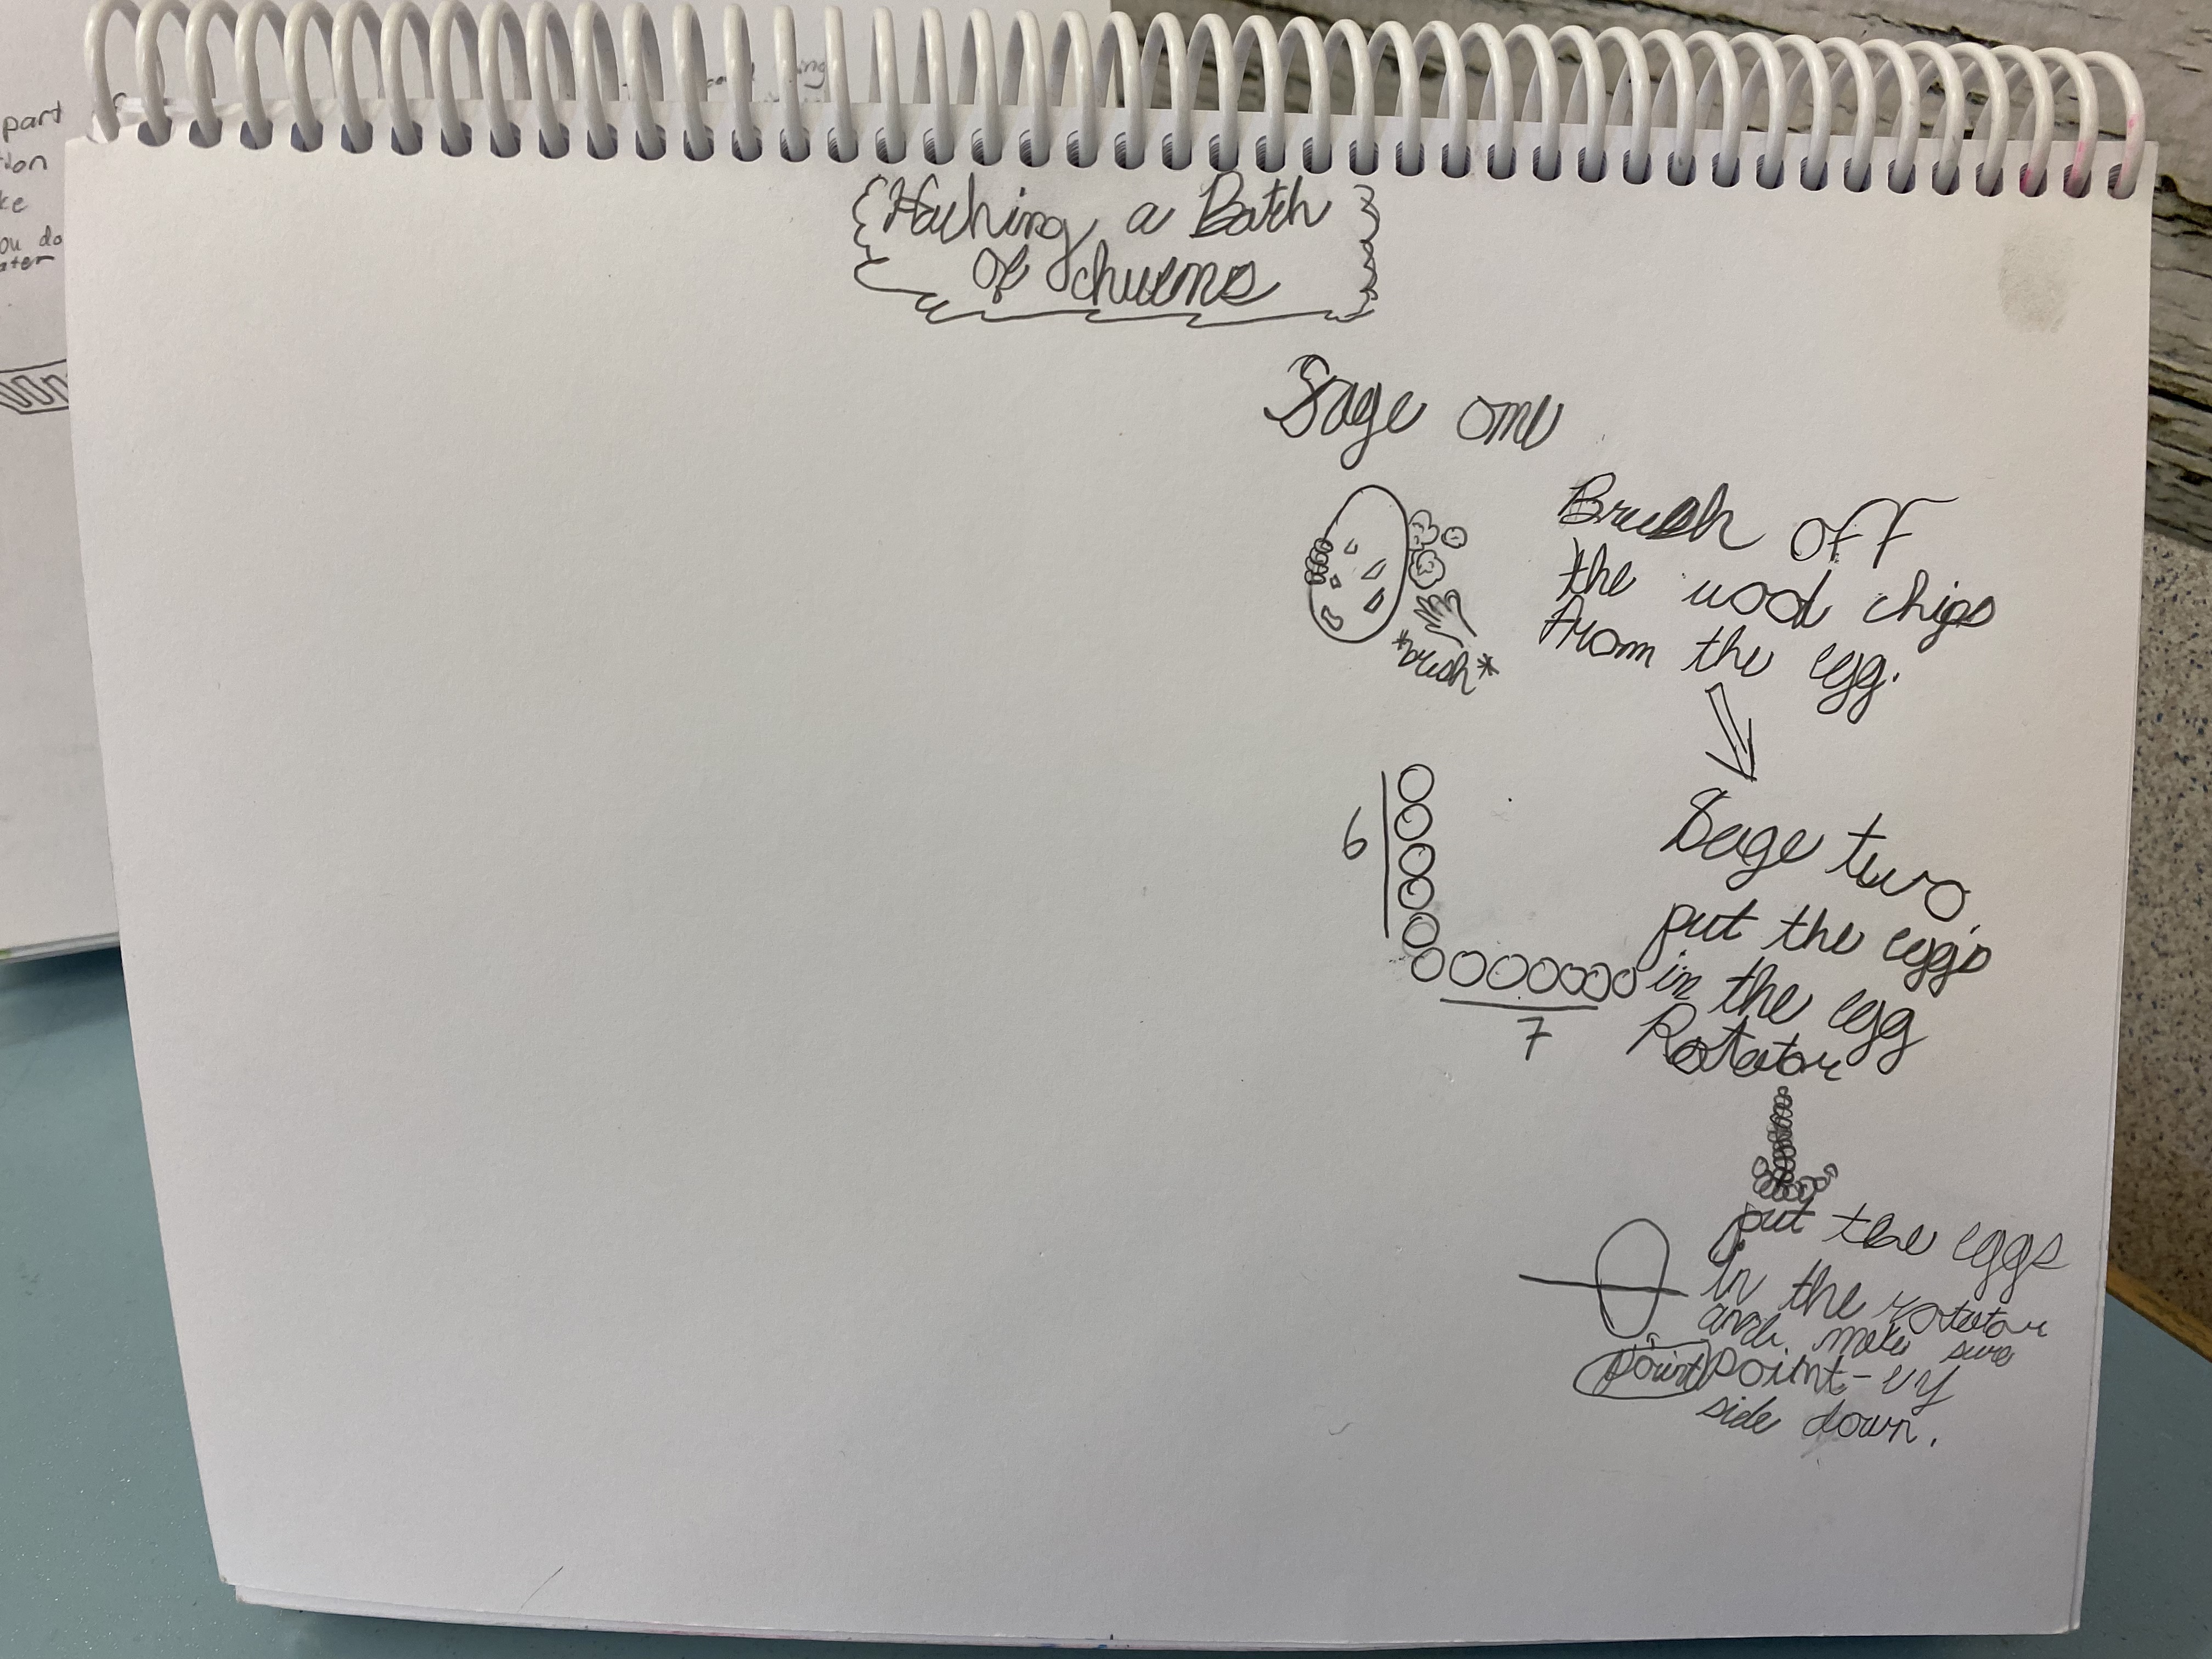 Haching a Batch
Of chuens
Sage one
Brush off
the wod chips
from the egg.
*brush*
6
7
Sage two
put the eggs
in the egg
Rotator
put the eggs
in the rotator
and make sure
point
point-ey
side down.
part
ke
ou do
ater
ing